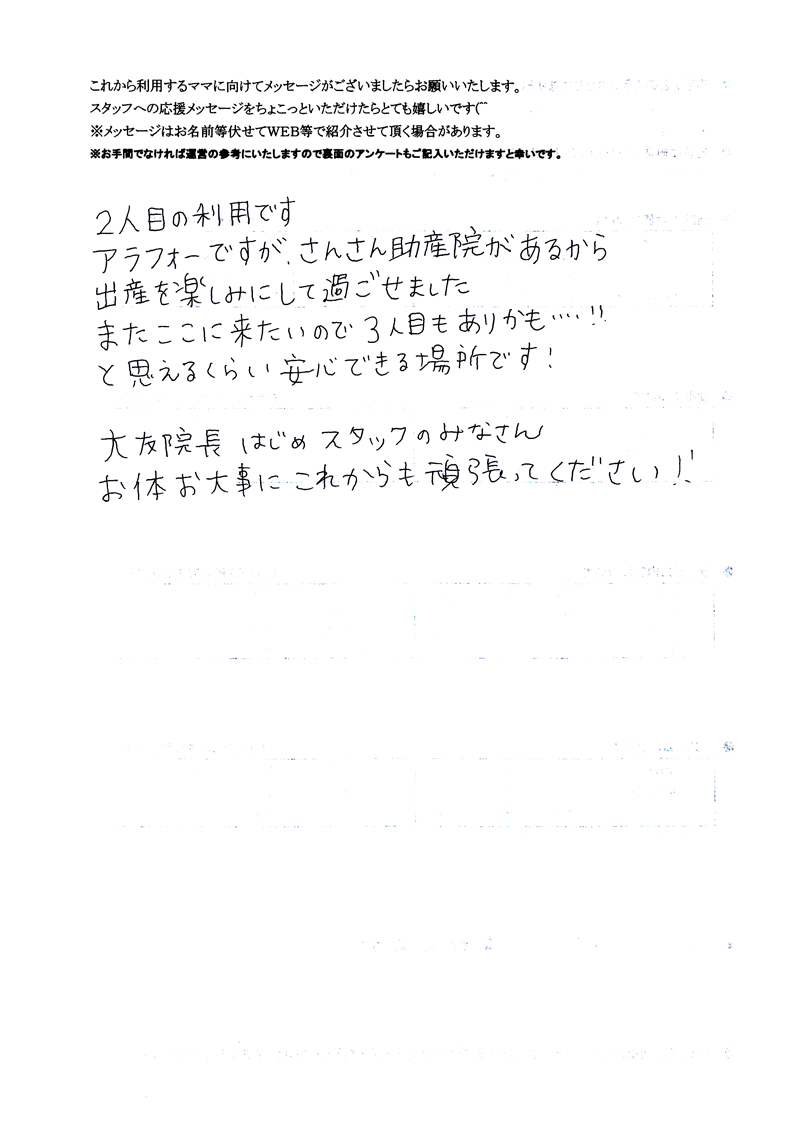 これから利用するママに向けてメッセージがございましたらお願いいたします。
スタッフへの応援メッセージをちょこっといただけたらとても嬉しいです(^^
※メッセージはお名前等伏せてWEB等で紹介させて頂く場合があります。
※お手間でなければ運営の参考にいたしますので裏面のアンケートもご記入いただけますと幸いです。
2人目の利用です
アラフォーですが、さんさん助産院があるから
出産を楽しみにして過ごせました
またここに来たいので3人目もありかも…!!
と思えるくらい安心できる場所です!
大友院長 はじめ スタックのみなさん
お体お大事に これからも頑張ってください!!